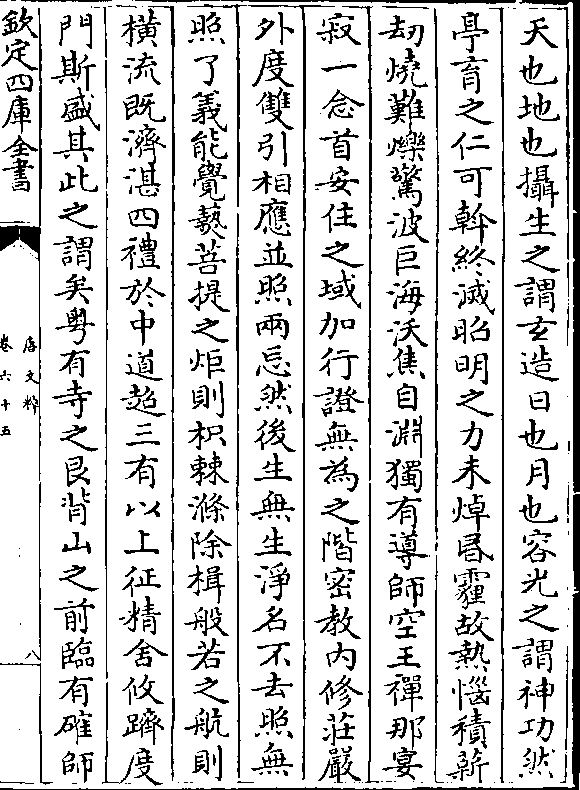 天也地也攝生之謂玄造日也月也容光之謂神功然
亭育之仁可斡終滅昭明之力未焯昏霾故熱惱積薪
刼燒難爍驚波巨海沃焦自淵獨有導師空王禪那宴
寂一念首安住之域加行證無為之階密教内修莊嚴
外度雙引相應並照兩忘然後生無生淨名不去照無
照了義能覺爇菩提之炬則枳棘滌除楫般若之航則
橫流既濟湛四禮於中道超三有以上征精舍攸躋度
門斯盛其此之謂矣粤有寺之艮背山之前臨有確師
欽定四庫全書
唐文粹
卷六十五
八